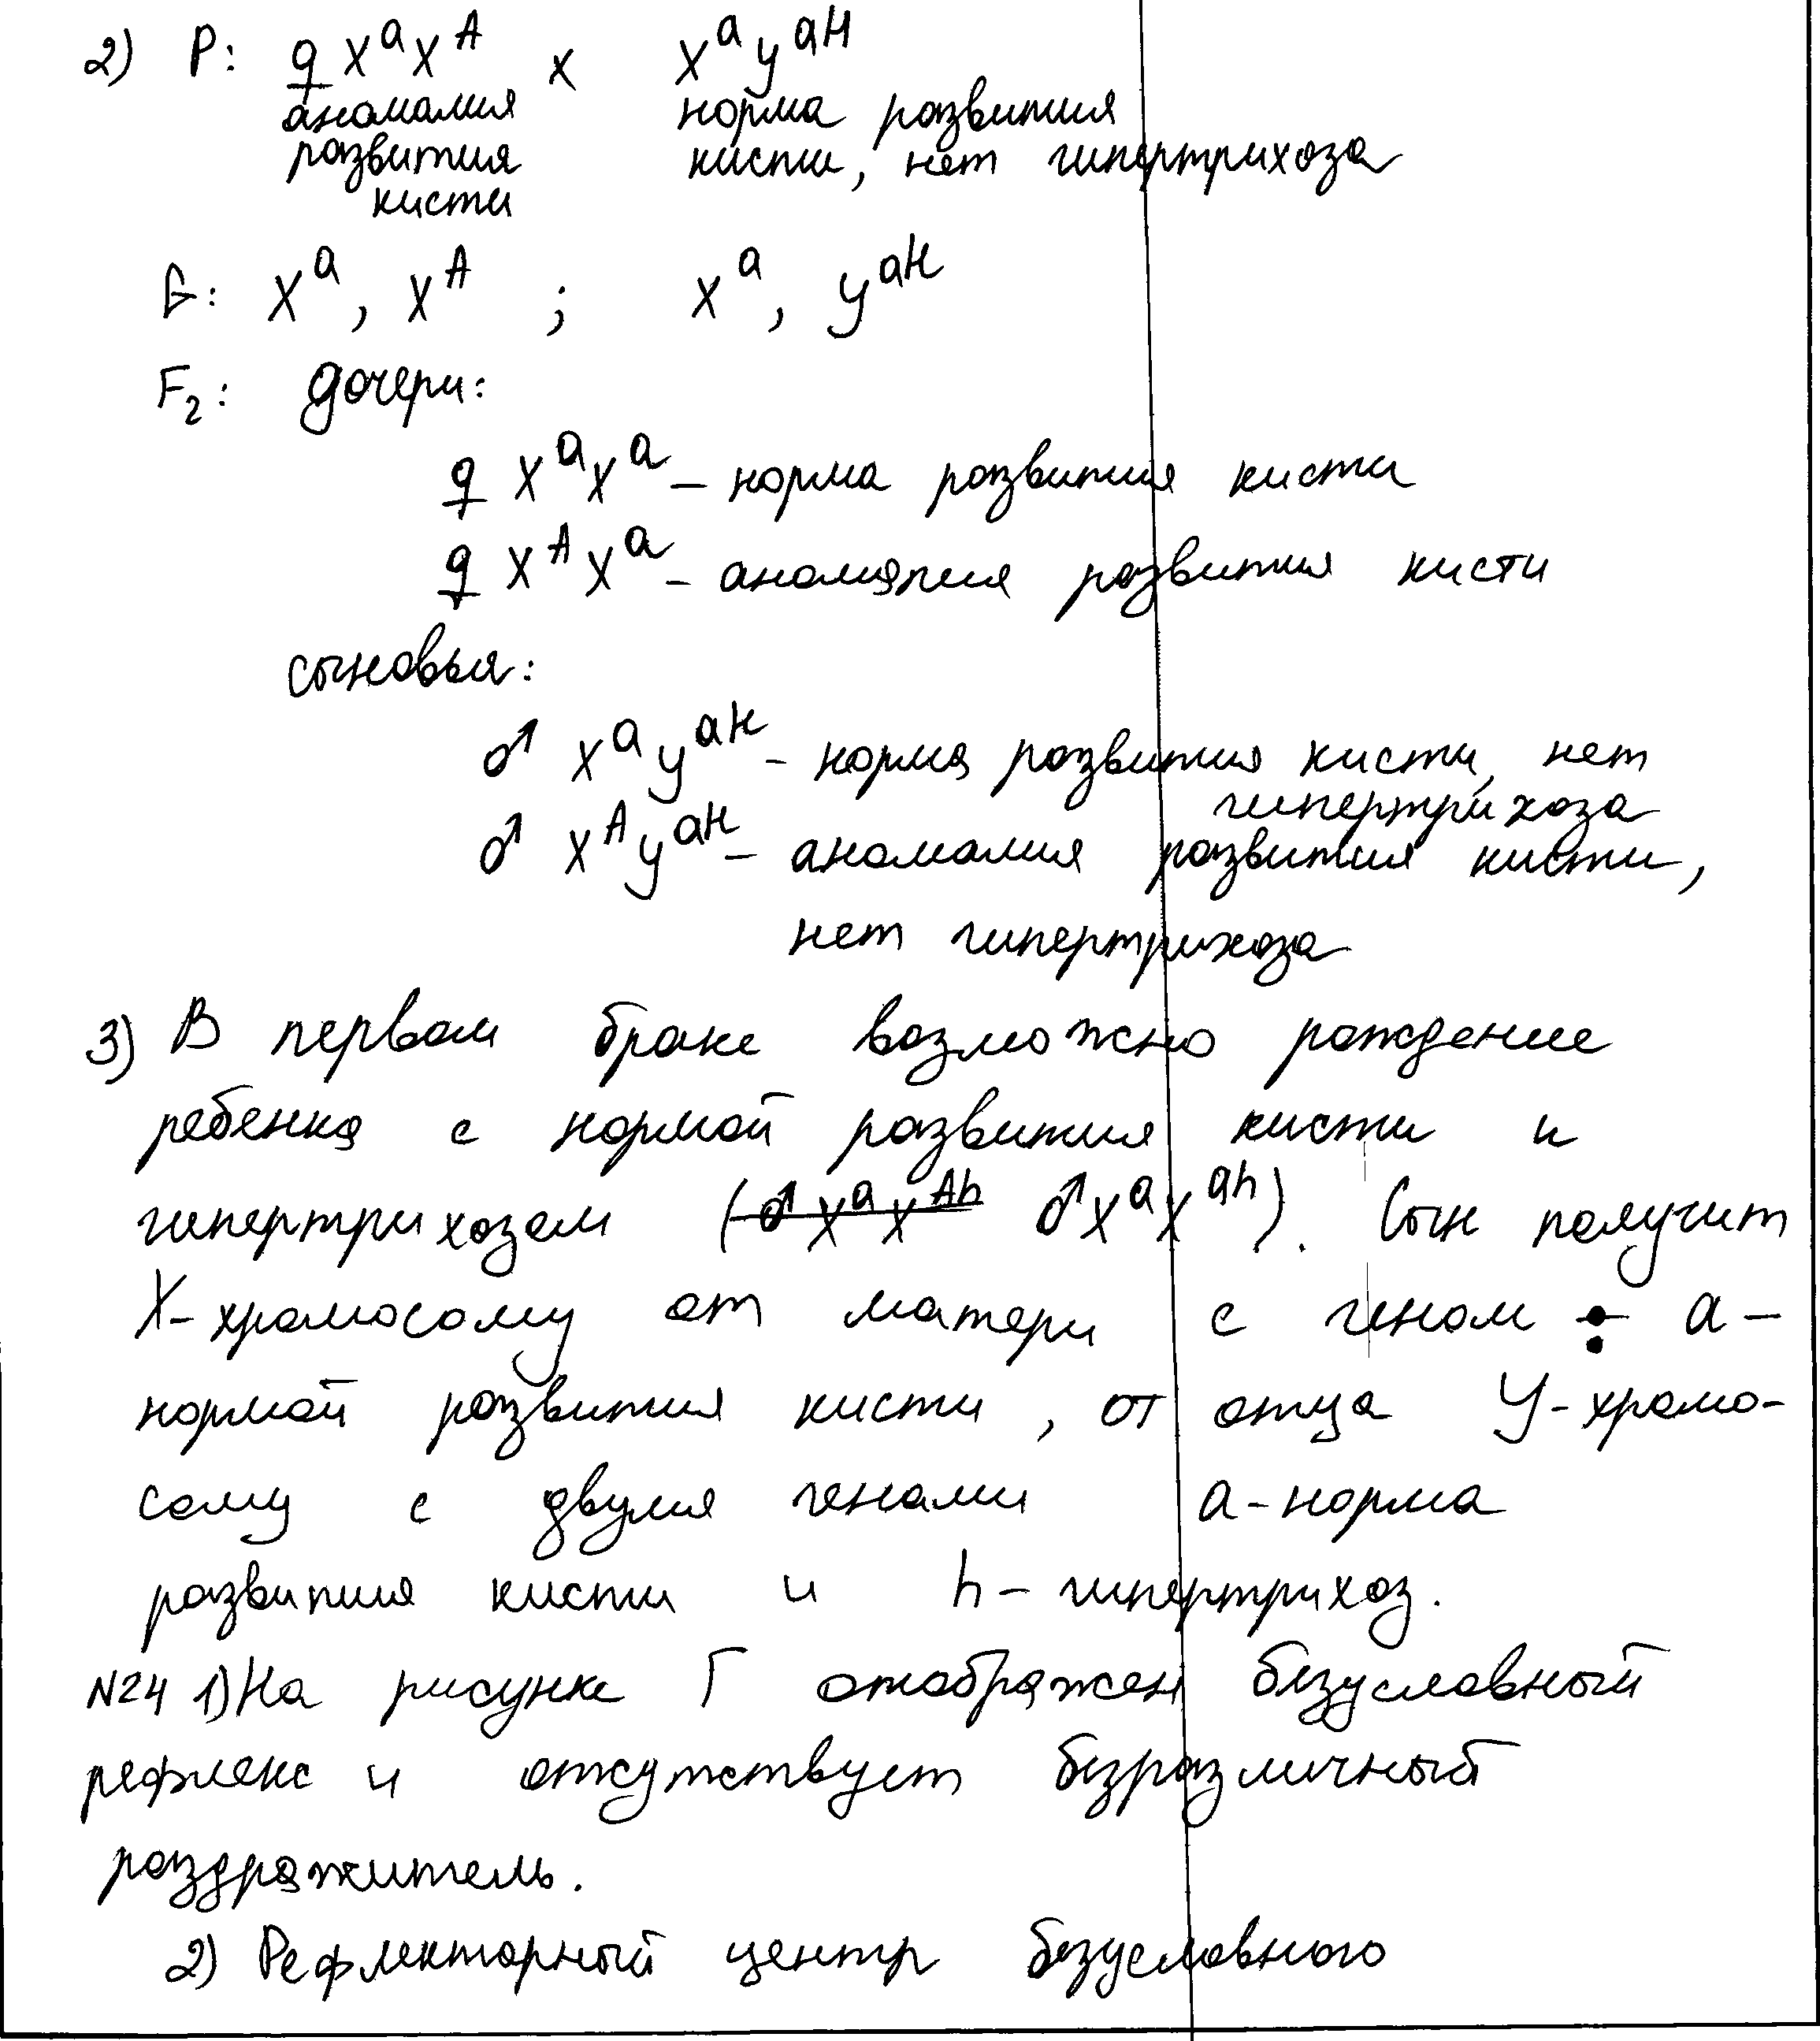 2) P: ♀ XᵃXᴬ x XᵃYᵃᴴ
аномалия норма развития
развития кисти, нет гипертрихоза
кисти
G: Xᵃ, Xᴬ ; Xᵃ, Yᵃᴴ
F₂: дочери:
♀ XᵃXᵃ – норма развития кисти
♀ XᴬXᵃ – аномалия развития кисти
сыновья:
♂ XᵃYᵃᴴ – норма развития кисти, нет
гипертрихоза
♂ XᴬYᵃᴴ – аномалия развития кисти,
нет гипертрихоза
3) В первом браке возможно рождение
ребенка с нормой развития кисти и
гипертрихозом (♂ XᵃXᴬʰ ♂ XᵃXᵃʰ). Сын получит
X-хромосому от матери с геном : a –
нормой развития кисти, от отца Y-хромо-
сому с двумя генами a – норма
развития кисти и h – гипертрихоз.
N24 1) На рисунке Г отображен безусловный
рефлекс и отсутствует безразличный
раздражитель.
2) Рефлекторный центр безусловного